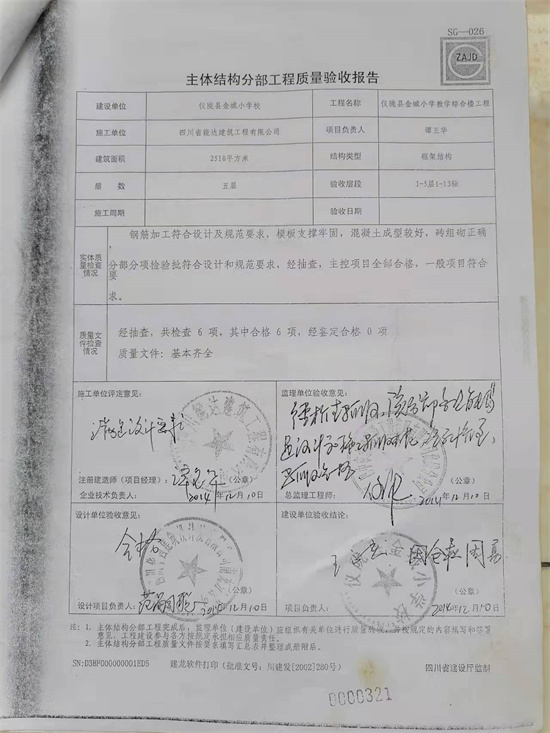 SG—026
ZAJD
主体结构分部工程质量验收报告
建设单位 仪陇县金城小学校 工程名称 仪陇县金城小学教学综合楼工程
施工单位 四川省能达建筑工程有限公司 项目负责人 谭玉华
建筑面积 2518平方米 结构类型 框架结构
层 数 五层 验收层段 1-5层1-13轴
施工周期 验收日期
实体质量检查情况
钢筋加工符合设计及规范要求，模板支撑牢固，混凝土成型较好，砖组砌正确，
分部分项检验批符合设计和规范要求，经抽查，主控项目全部合格，一般项目符合要
求。
质量文件检查情况
经抽查，共检查 6 项，其中合格 6 项，经鉴定合格 0 项
质量文件：基本齐全
施工单位评定意见：
注册建造师（项目经理）： （公章）
企业技术负责人： 2014年12月10日
监理单位验收意见：
总监理工程师： （公章）
2014年12月10日
设计单位验收意见：
合格
（公章）
设计项目负责人： 2014年12月10日
建设单位验收结论：
（公章）
2014年12月10日
注：1. 主体结构分部工程完成后，监理单位（建设单位）应组织有关单位进行质量验收，并按规定的内容填写和签署
意见，工程建设参与各方按规定承担相应质量责任。
2. 主体结构分部工程质量文件按要求填写汇总表并整理成册附后。
SN:D3BFD00000001ED5 建龙软件打印（批准文号：川建发[2002]280号） 四川省建设厅监制
0000321